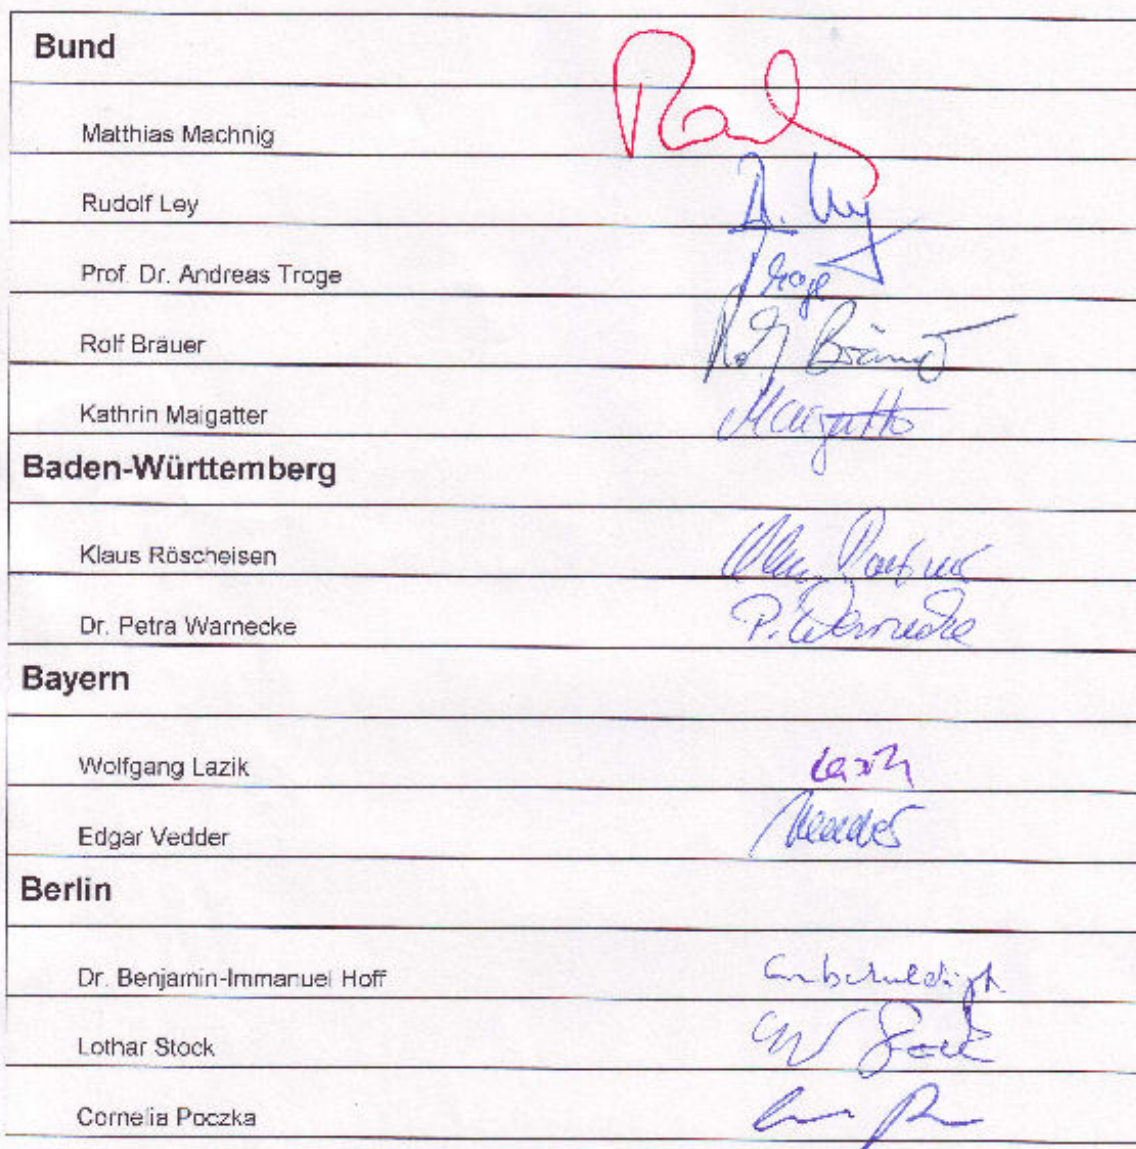 Bund
Matthias Machnig
Rudolf Ley R. Ley
Prof. Dr. Andreas Troge Troge
Rolf Bräuer Rolf Bräuer
Kathrin Maigatter Maigatter
Baden-Württemberg
Klaus Röscheisen
Dr. Petra Warnecke P. Warnecke
Bayern
Wolfgang Lazik Lazik
Edgar Vedder Vedder
Berlin
Dr. Benjamin-Immanuel Hoff entschuldigt
Lothar Stock Stock
Cornelia Poczka